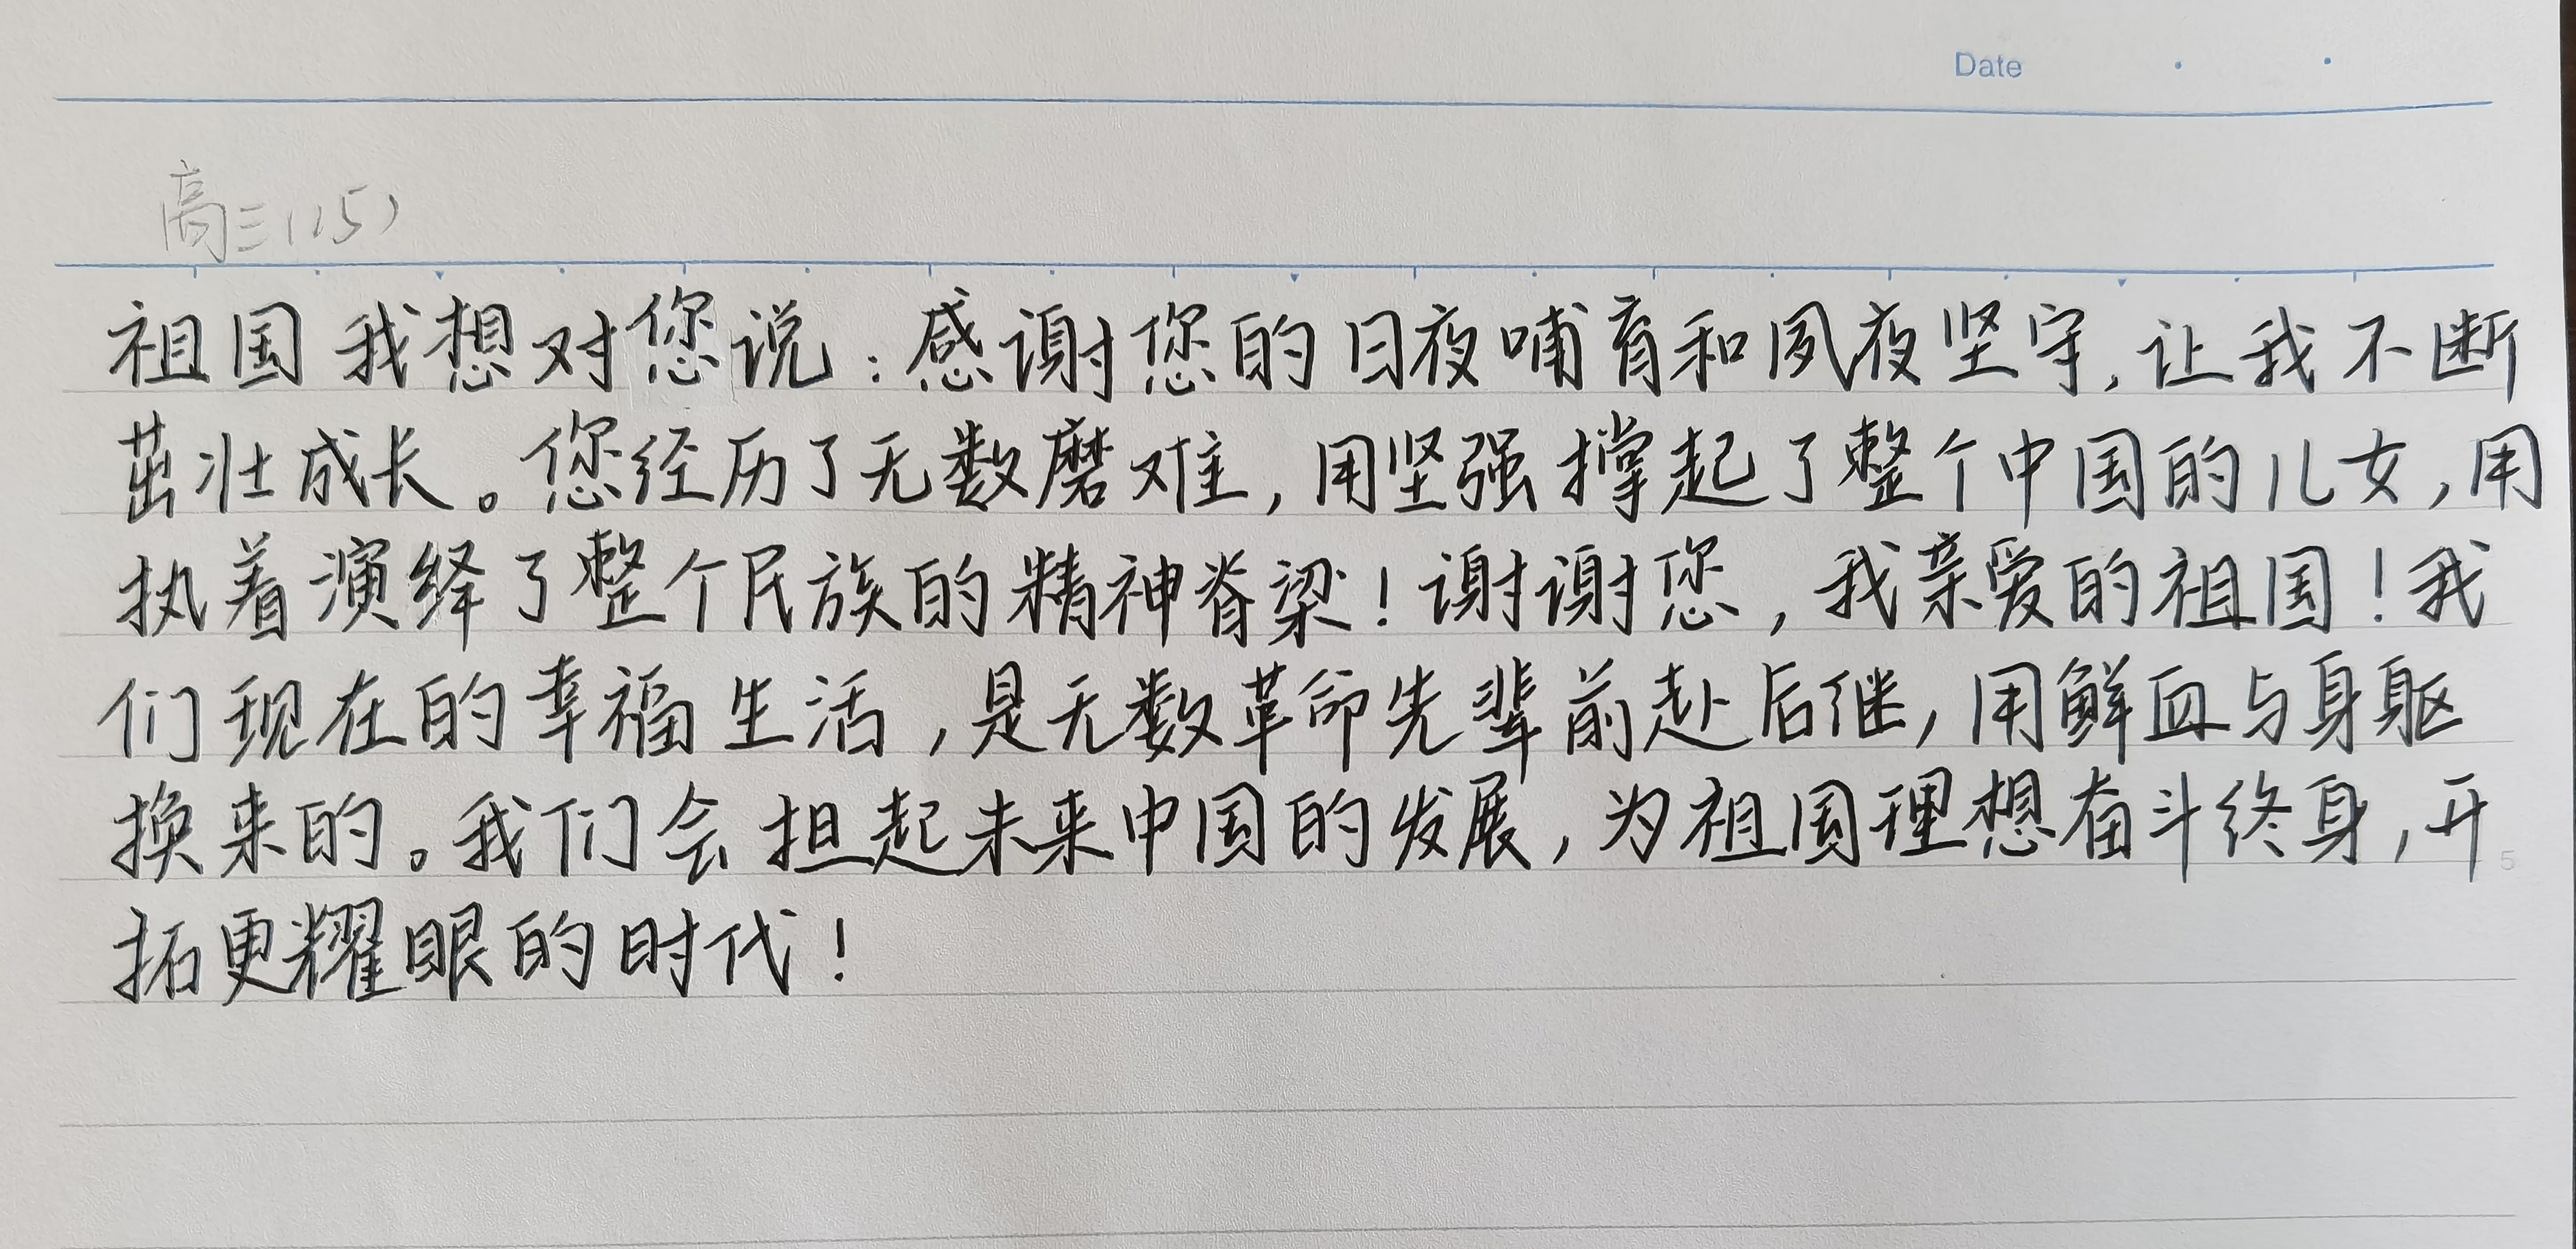 Date
高三(15)
祖国 我想对您说:感谢您的日夜哺育和夙夜坚守,让我不断
茁壮成长。您经历了无数磨难,用坚强撑起了整个中国的儿女,用
执着演绎了整个民族的精神脊梁!谢谢您,我亲爱的祖国!我
们现在的幸福生活,是无数革命先辈前赴后继,用鲜血与身躯
换来的。我们会担起未来中国的发展,为祖国理想奋斗终身,开
拓更耀眼的时代!
5